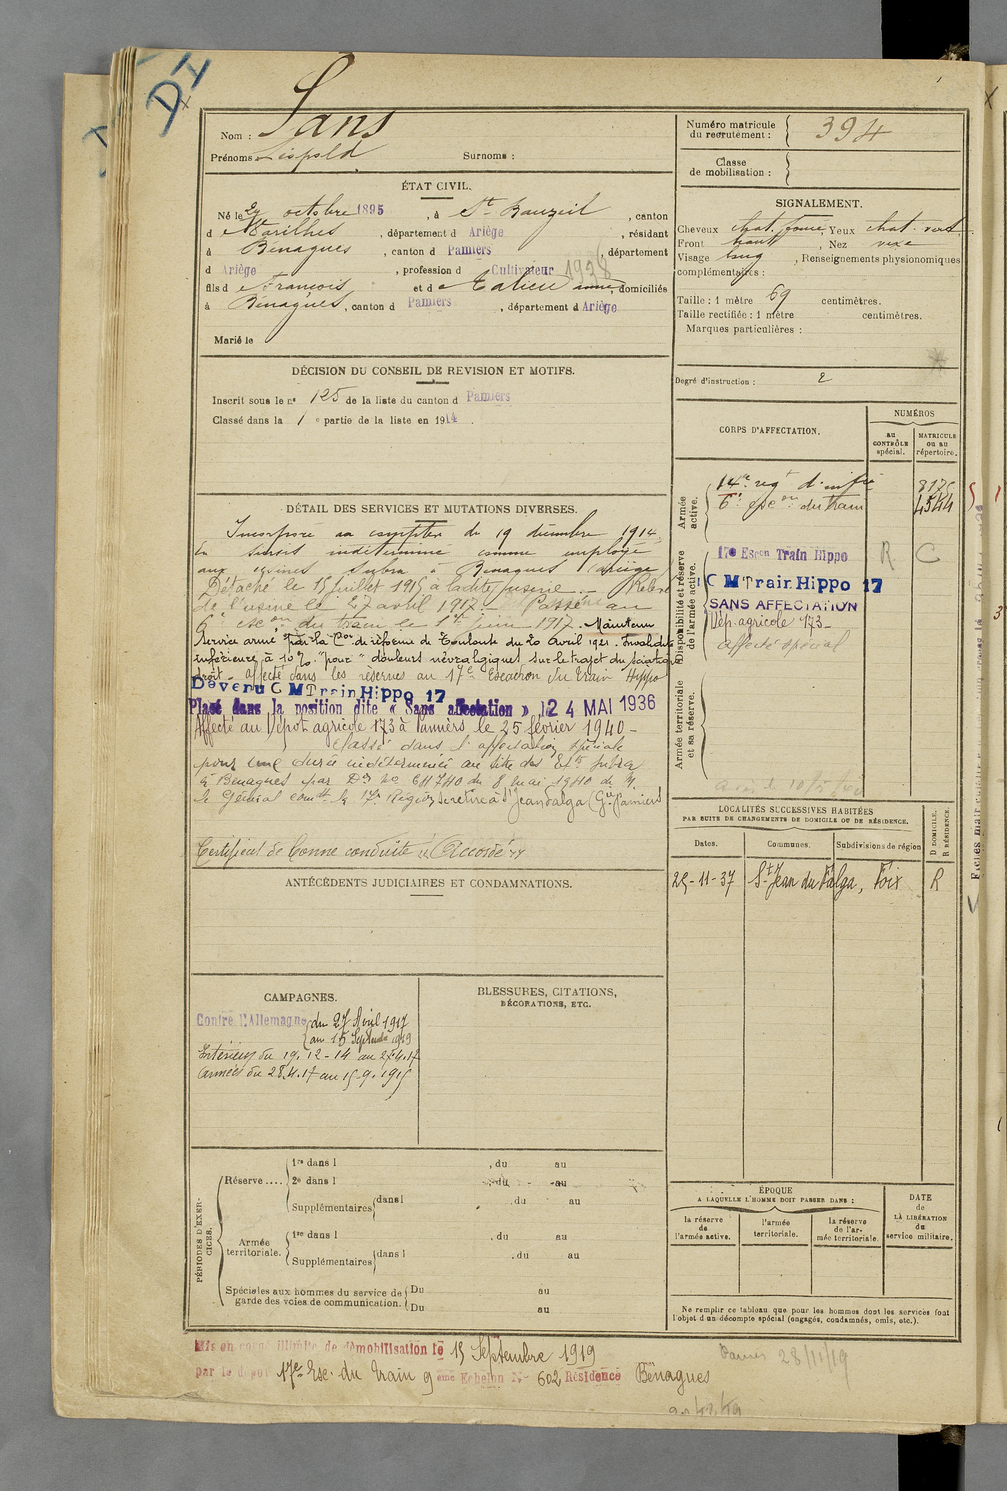 DI
Nom : Sans
Prénoms Léopold Surnoms :
Numéro matricule du recrutement : 394
Classe de mobilisation :
ÉTAT CIVIL.
Né le octobre 1895, à St Bauzeil, canton
d e Varilhes, département d Ariège, résidant
à Bénagues, canton d Pamiers, département
d Ariège, profession d Cultivateur 1938
fils d e François et d e , domiciliés
à Bénagues, canton d Pamiers, département d Ariège
Marié le
SIGNALEMENT.
Cheveux chat. foncé, Yeux chat. vert
Front haut, Nez
Visage long, Renseignements physionomiques
complémentaires :
Taille : 1 mètre 69 centimètres.
Taille rectifiée : 1 mètre centimètres.
Marques particulières :
Degré d'instruction : 2
DÉCISION DU CONSEIL DE REVISION ET MOTIFS.
Inscrit sous le n° 125 de la liste du canton d Pamiers
Classé dans la 1 e partie de la liste en 1914.
CORPS D'AFFECTATION.
NUMÉROS
AU CONTRÔLE spécial.
MATRICULE ou au répertoire.
Armée active.
14e regt d'infie 8175
6e escon du train 4544
Disponibilité et réserve de l'armée active.
17e Escon Train Hippo R C
C M Train Hippo 17
SANS AFFECTATION
Dép. agricole 173
affecté spécial
Armée territoriale et sa réserve.
DÉTAIL DES SERVICES ET MUTATIONS DIVERSES.
Incorporé à compter du 19 décembre 1914.
En sursis indéterminé comme employé
aux usines Subra à Bénagues (Ariège)
Détaché le 15 juillet 1915 à ladite usine. Relevé
de l'usine le 27 avril 1917. Passé au
6e escon du train le 1er juin 1917. Maintenu
service armé par la Con de réforme de Toulouse du 20 Avril 1921. Invalidité
inférieure à 10 %. "pour" douleurs névralgiques sur le trajet du sciatique
droit. affecté dans les réserves au 17e Escadron du Train Hippo
Devenu C M Train Hippo 17
Placé dans la position dite « Sans affectation » le 24 MAI 1936
Affecté au Dépôt agricole 173 à Pamiers le 25 février 1940
Classé dans l'affectation spéciale
pour une durée indéterminée au titre des Ets Subra
à Bénagues par Don No du 8 mai 1940 de M.
le Général comdt la 17e Région se retire à St Jean du Falga (Ge Pamiers)
Certificat de bonne conduite "Accordé"
ANTÉCÉDENTS JUDICIAIRES ET CONDAMNATIONS.
LOCALITÉS SUCCESSIVES HABITÉES
PAR SUITE DE CHANGEMENTS DE DOMICILE OU DE RÉSIDENCE.
Dates. Communes. Subdivisions de région D DOMICILE. R RÉSIDENCE.
25-11-37 St Jean du Falga, Foix R
CAMPAGNES.
Contre l'Allemagne du 27 Avril 1917
au 15 Septembre 1919
Intérieur du 19.12-14 au 27.4.17
Armées du 28.4.17 au 15.9.1919
BLESSURES, CITATIONS,
DÉCORATIONS, ETC.
PÉRIODES D'EXERCICES.
Réserve .... 1re dans l , du au
2e dans l , du au
Supplémentaires dans l , du au
Armée territoriale. 1re dans l , du au
Supplémentaires dans l , du au
Spéciales aux hommes du service de garde des voies de communication. Du au
Du au
ÉPOQUE
A LAQUELLE L'HOMME DOIT PASSER DANS :
la réserve de l'armée active.
l'armée territoriale.
la réserve de l'armée territoriale.
DATE de LA LIBÉRATION du service militaire.
Ne remplir ce tableau que pour les hommes dont les services font
l'objet d'un décompte spécial (engagés, condamnés, omis, etc.).
Mis en congé illimité de démobilisation le 15 Septembre 1919
par le dépôt 17e Esc. du Train 9 eme Echelon N° 602 Résidence Bénagues
28/11/19